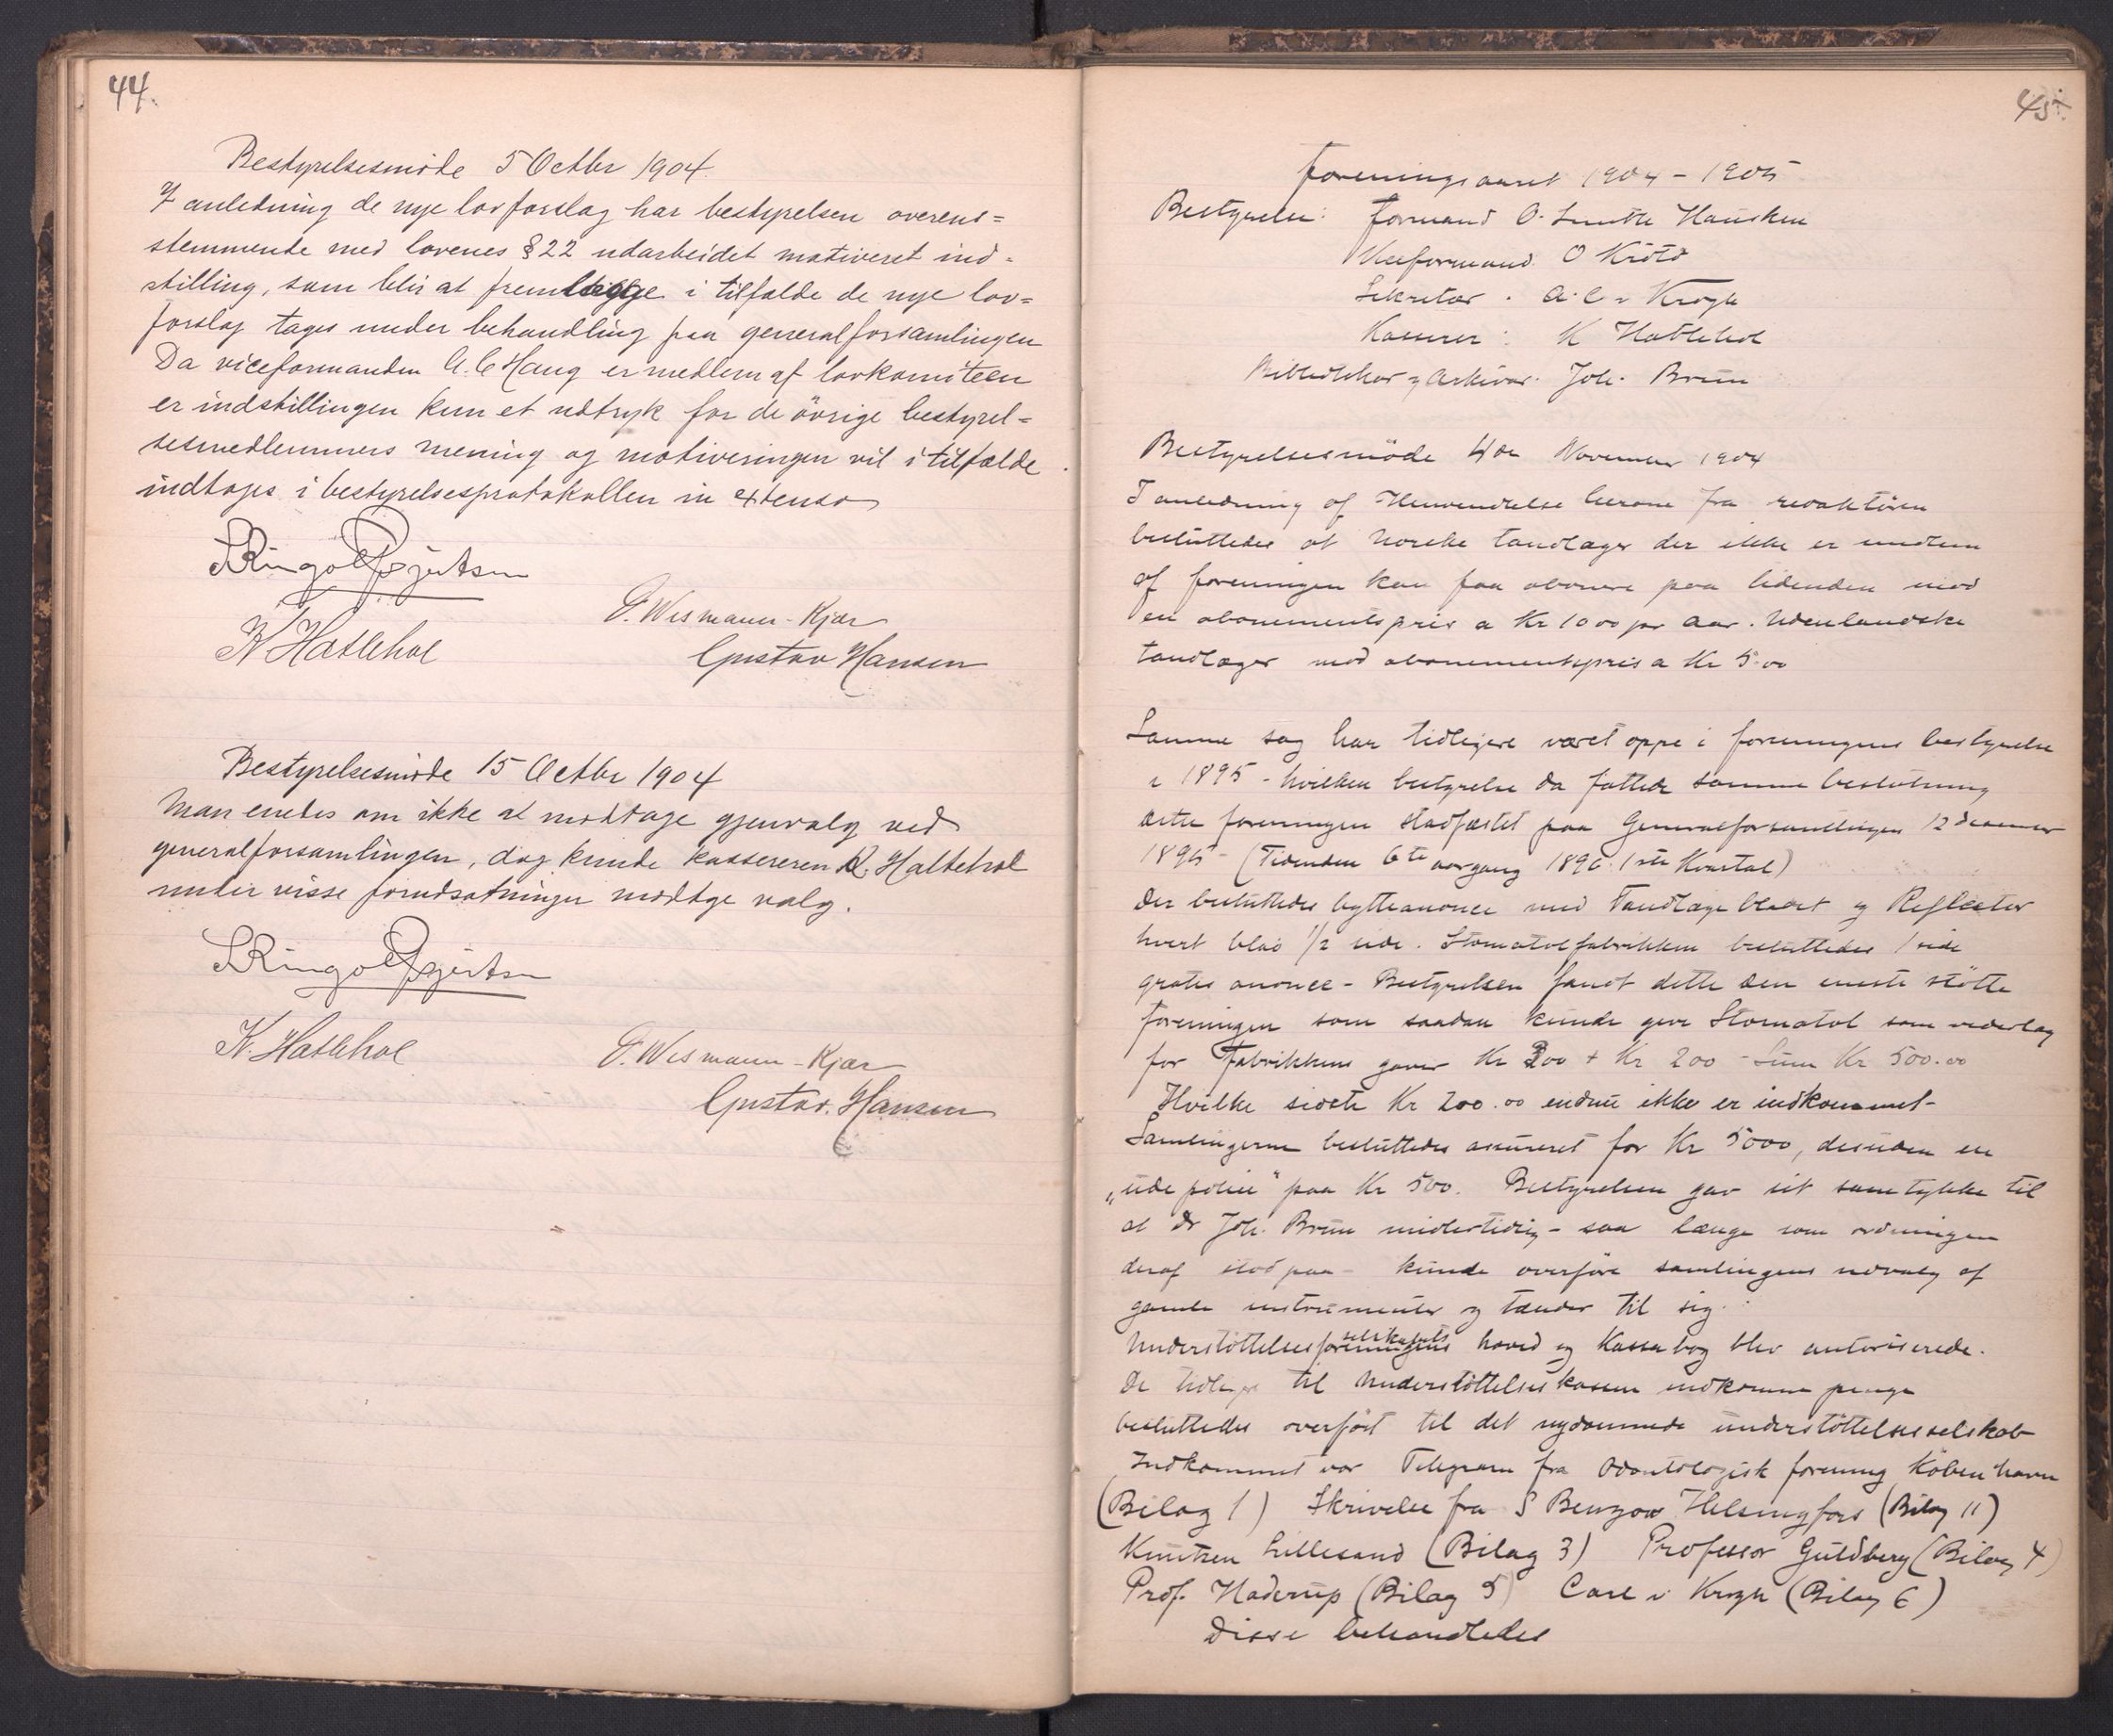 44.
Bestyrelsesmøde 5 Octbr 1904.
I anledning de nye lovforslag har bestyrelsen overens=
stemmende med lovenes § 22 udarbeidet motiveret ind=
stilling, som blir at fremlægge i tilfælde de nye lov=
forslag tages under behandling paa generalforsamlingen
Da viceformanden A. C Haug er medlem af lovkomiteen
er indstillingen kun et udtryk for de övrige bestyrel=
sesmedlemmers mening og motiveringen vil i tilfælde
indtages i bestyrelsesprotokollen in extenso
K Hatlehol
F. Wesmann-Kjær
Gustav Hansen
Bestyrelsesmøde 15 Octbr 1904
Man enedes om ikke at modtage gjenvalg ved
generalforsamlingen, dog kunde kassereren K. Haltehol
under visse forudsætninger modtge valg.
K. Hatlehol
F. Wesmann-Kjær
Gustav. Hansen
45.
Foreningsaaret 1904 - 1905
Bestyrelse: Formand O. Smith Housken
Viceformand. O
Sekretær. A. C v Krogh
Kasserer: K Hatlehol
Bibliothekar og Arkivar. Joh. Brun
Bestyrelsesmöde 4de November 1904
I anledning af Henvendelse herom fra redaktören
besluttedes at norske tandlæger der ikke er medlem
af foreningen kan faa abonere paa tidenden mod
en abonementspris a Kr 10 00 pr aar. Udenlandske
tandlæger mod abonementspris a Kr 5.00
Samme sag har tidligere været oppe i foreningens bestyrelse
i 1895 - hvilken bestyrelse da fattede samme beslutning
dette foreningen stadfæstet paa Generalforsamlingen 12 december
1895 - (Tidenden 6te aargang 1896. 1ste Kvartal)
Der besluttedes bytteanonce med Tandlægebladet og Reflector
hvert blad 1/2 side. Stomatolfabrikken besluttedes 1 side
gratis anonce - Bestyrelsen fandt dette den eneste stötte
foreningen som saadan kunde give Stomatol som vederlag
for Fabrikkens gaver Kr 300 + Kr 200 - Sum Kr 500.00
Hvilke sidste Kr 200.00 endnu ikke er indkommet -
Samlingerne besluttedes assureret for Kr 5000, desuden en
„ude police" paa Kr 500. Bestyrelsen gav sit samtykke til
at Dr Joh. Brun midlertidig - saa længe som ordningen
deraf stod paa - kunde overføre samlingens udvalg af
gamle instrumenter og tænder til sig.
selskabets
Understöttelsesforeningens hoved og Kassabog blev autoriserede.
De tidligere til Understöttelseskassen indkomne penge
besluttedes overført til det nydannede understöttelsesselskab
Indkommet var Telegram fra Odontologisk forening Köbenhavn
(Bilag 1) Skrivelse fra S Benzow Helsingfors (Bilag 11)
Knutzen Lillesand (Bilag 3) Professor Guldberg (Bilag 4)
Prof. Haderup (Bilag 5) Carl v Krogh (Bilag 6)
Disse behandledes